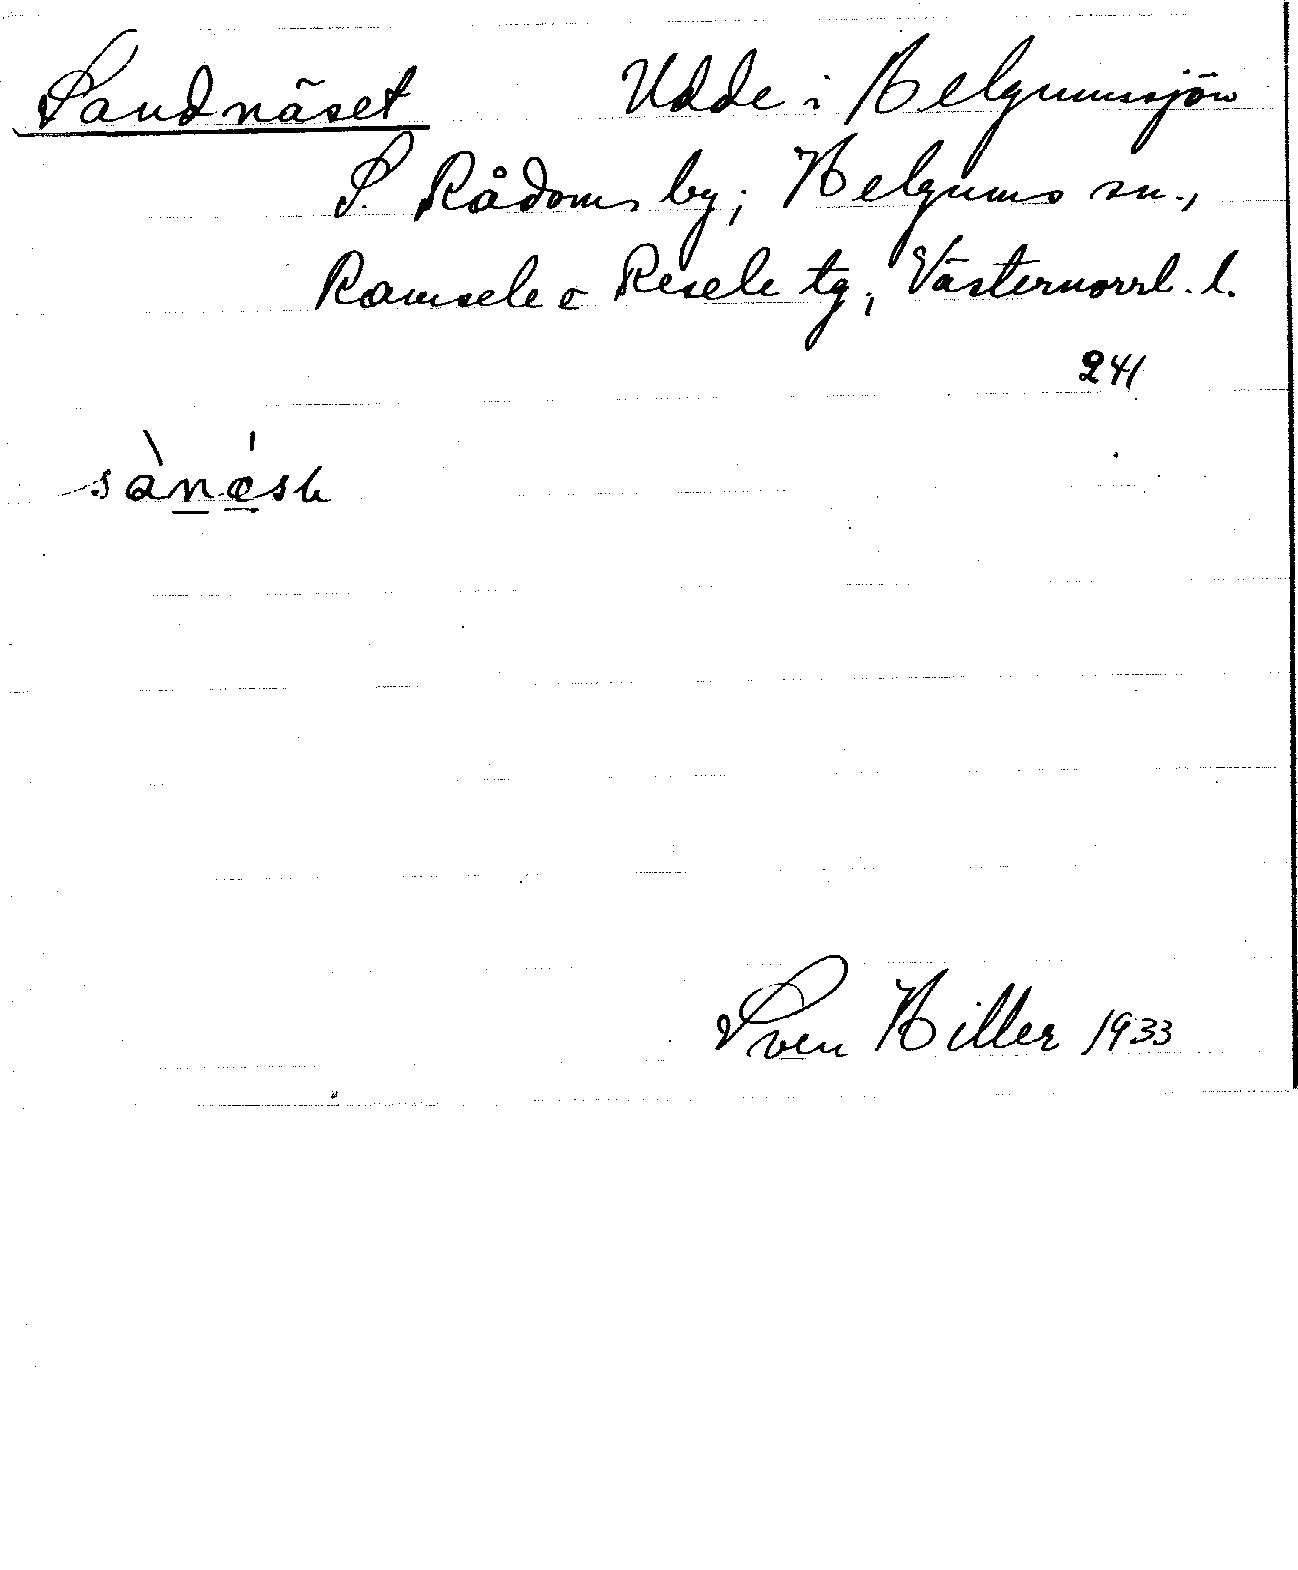 Sandnäset Udde i Helgumssjön
S. Rådoms by; Helgums sn.,
Ramsele o Resele tg, Västernorrl. l.
241
Sven Hiller 1933